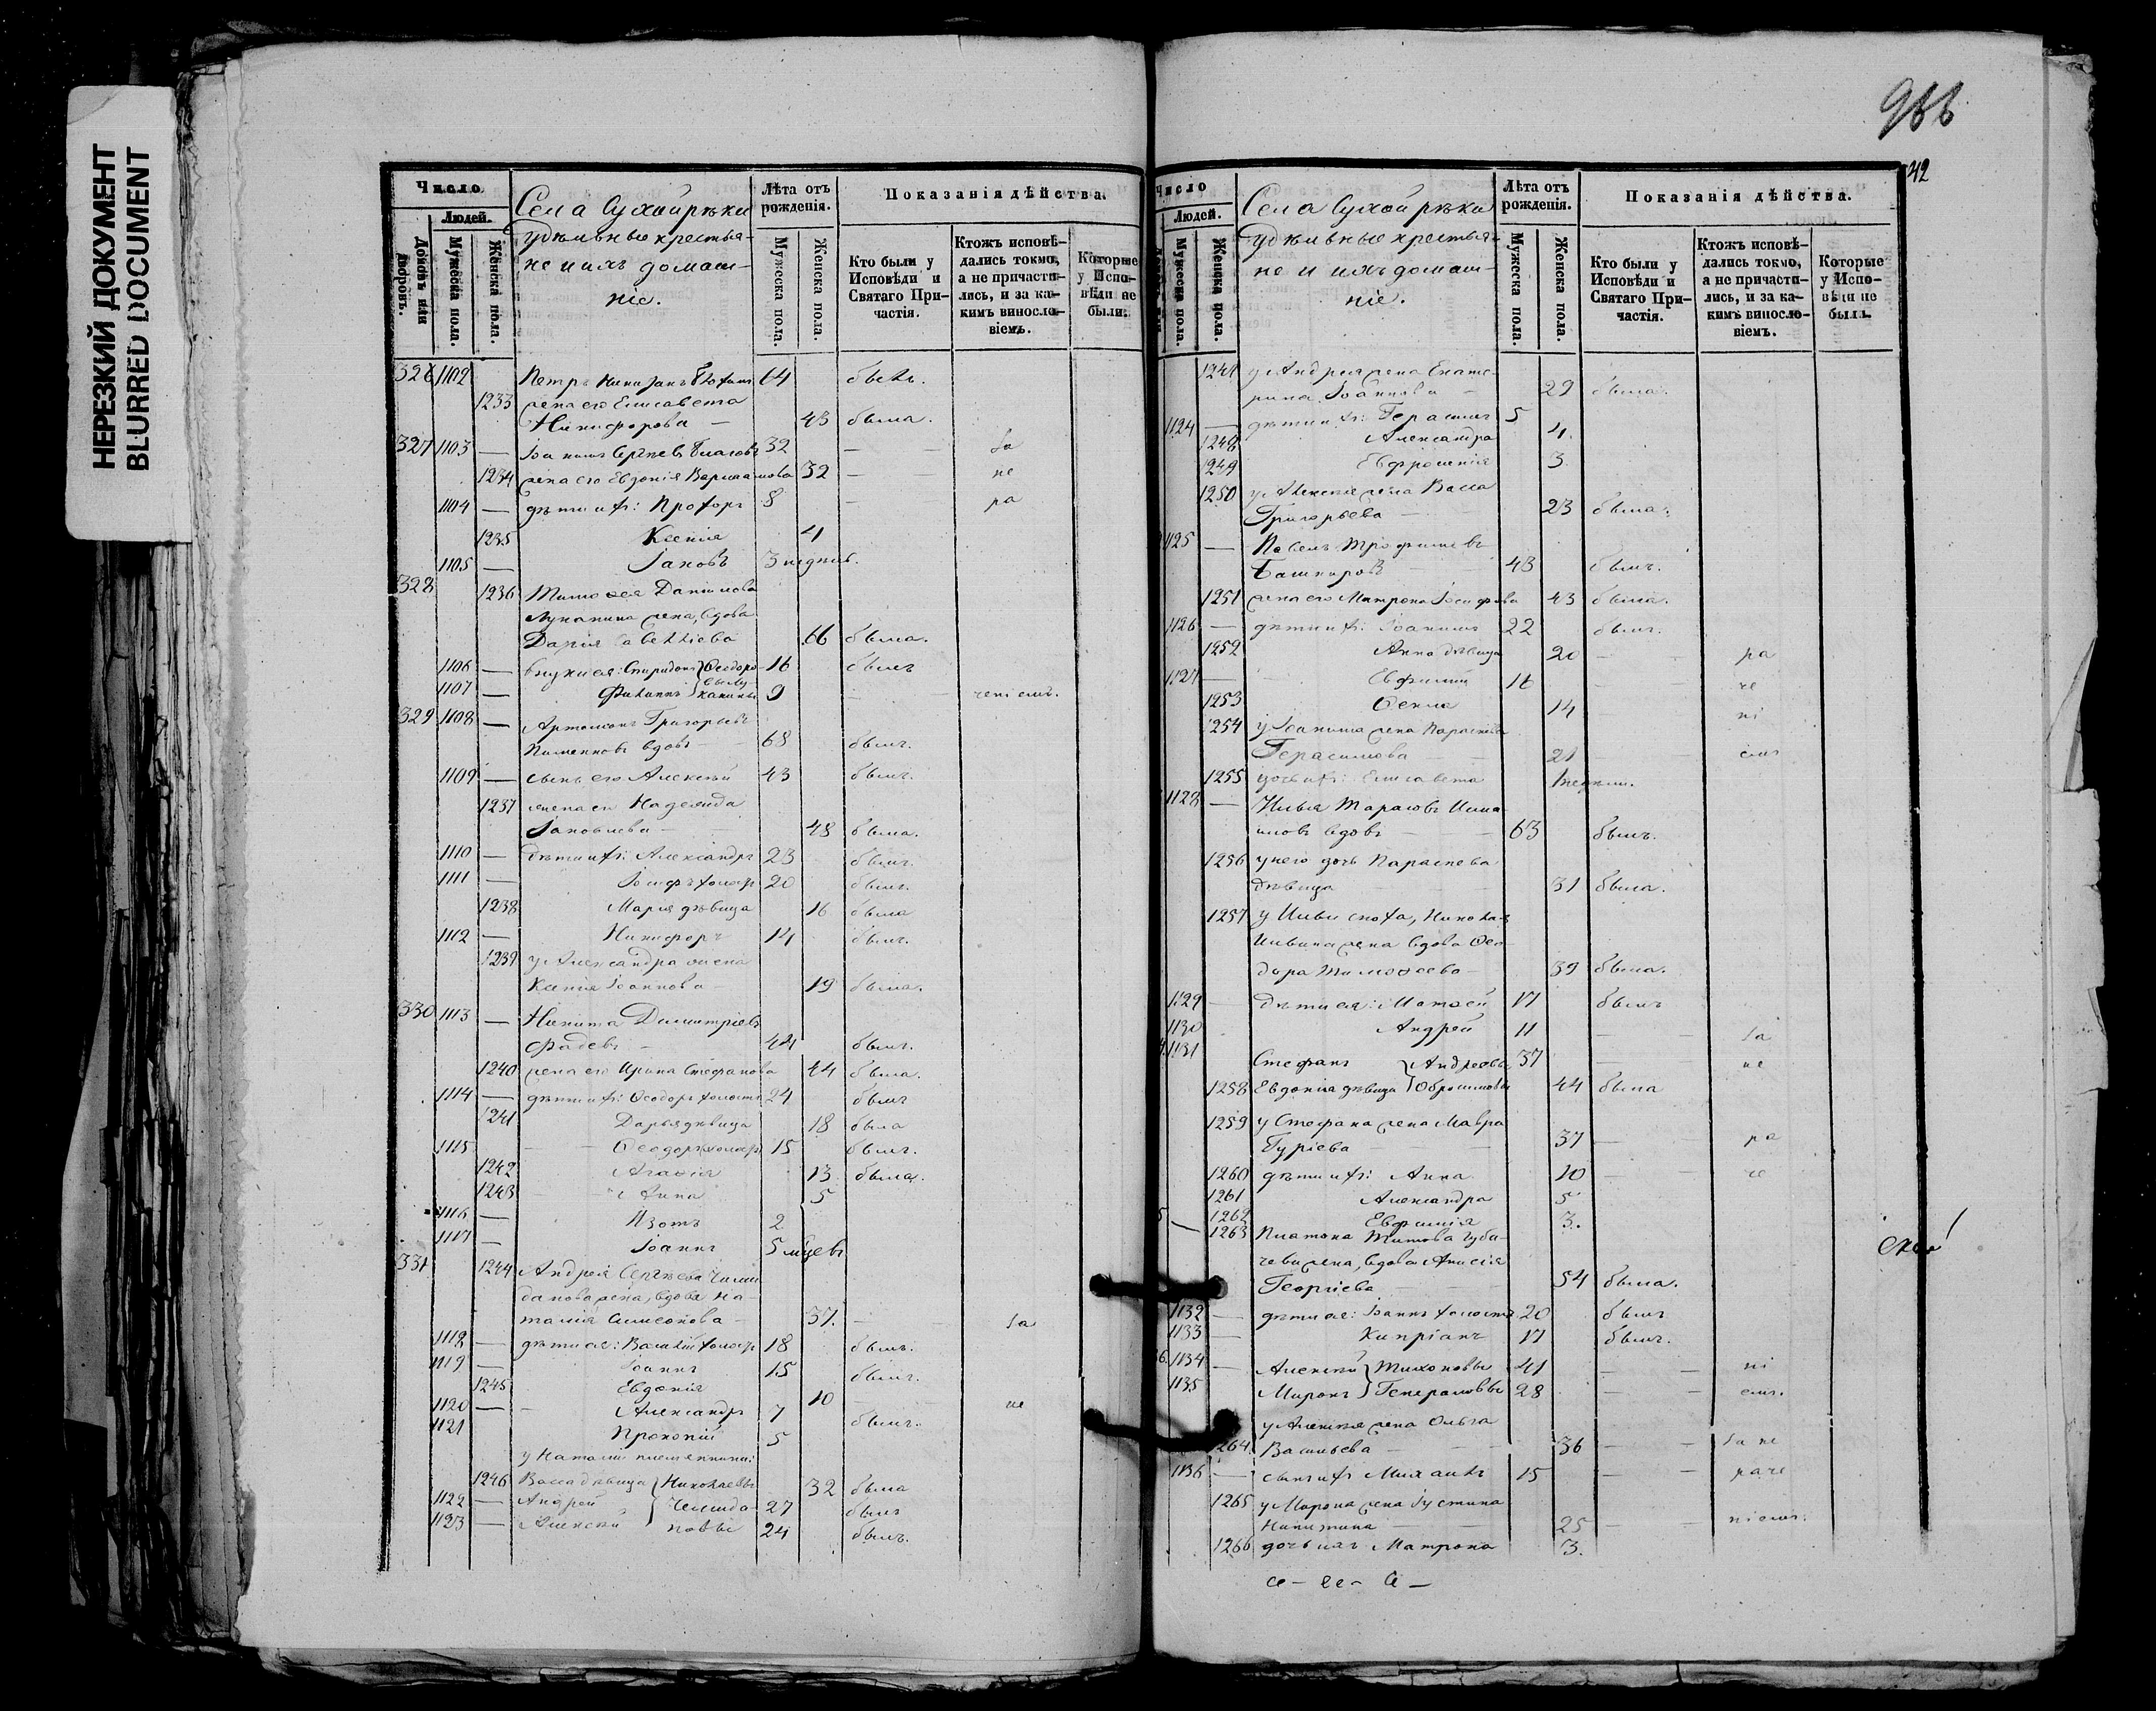 НЕРЕЗКИЙ ДОКУМЕНТ
BLURRED DOCUMENT
966
42
Число
Людей.
Домовъ или дворовъ.
Мужеска пола.
Женска пола.
Села Сухой рѣки
удѣльные крестья-
не и ихъ домаш-
ніе.
Лѣта отъ рожденія.
Мужеска пола.
Женска пола.
Показанія дѣйства.
Кто были у Исповѣди и Святаго При-частія.
Ктожъ исповѣ-дались токмо, а не причасти-лись, и за ка-кимъ винослo-віемъ.
Которые у Испо-вѣди не были.
326 1102 Петръ 64 былъ.
1233 жена его Елисавета
Никифорова — 43 была.
327 1103 — Іоаннъ 32 — за
1234 жена его Евдокія 32 — не
1104 — дѣти ихъ: Прохоръ 8 — ра
1235 Ксенія 4
1105 — Іаковъ 3 недѣль.
328 1236 Тимоѳея Данилова
Лукакина жена, вдова
Дарія Савельева 66 была.
1106 — внуки ея: Спиридонъ Ѳеодоро- 16 былъ
1107 — Филиппъ 9 — ченіемъ.
329 1108 — Артемонъ Григорьевъ
Пименновъ вдовъ — 68 былъ.
1109 — сынъ его Алексѣй 43 былъ.
1237 жена его Надежда
Іаковлева — 48 была.
1110 — дѣти ихъ: Александръ 23 былъ.
1111 — Іосифъ холост 20 былъ.
1238 Марія дѣвица 16 была
1112 — Никифоръ 14 былъ.
1239 у Александра жена
Ксенія Іоаннова — 19 была.
330 1113 — Никита Димитріевъ
Фадѣевъ — 44 былъ.
1240 жена его Ирина Стефанова 44 была.
1114 — дѣти ихъ: Ѳеодоръ холостъ 24 былъ
1241 Дарья дѣвица 18 была
1115 — Ѳеодоръ холост 15 былъ.
1242 Агаѳія 13 была.
1243 Анна 5
1116 — Изотъ 2
1117 — Іоаннъ 5 мѣсцевъ
331 1244 Андрея Сергѣева Чили
данова жена, вдова На-
талія Симеонова — 37. — за
1118 — дѣти ея: Василій холост 18 былъ.
1119 — Іоаннъ 15 былъ.
1245 Евдокія 10 — не
1120 — Александръ 7 былъ.
1121 Прокопій 5
у Наталіи племянники:
1246 Васса дѣвица Николаевы 32 была
1122 — Андрей 27 былъ
1123 — Алексѣй новы 24 былъ.
Число
Людей.
Мужеска пола.
Женска пола.
Села Сухой рѣки
удѣльные крестья-
не и ихъ домаш-
ніе.
Лѣта отъ рожденія.
Мужеска пола.
Женска пола.
Показанія дѣйства.
Кто были у Исповѣди и Святаго При-частія.
Ктожъ исповѣ-дались токмо, а не причасти-лись, и за ка-кимъ винослo-віемъ.
Которые у Испо-вѣди не были.
1247 у Андрея жена Екате-
рина Іоаннова — 29 была.
1124 — дѣти ихъ: Герасимъ 5
1248 Александра 4.
1249 Евфросинія 3
1250 у Алексѣя жена Васса
Григорьева — 23 была.
1125 — Павелъ Трофимовъ
Башкировъ 43 былъ.
1251 жена его Матрона Іосифова 43 была.
1126 — дѣти ихъ: Іоаннъ 22 былъ.
1252 Анна дѣвица 20 — ра
1127 — Евфимій 16 — че
1253 Ѳекла 14 ні
1254 у Іоанна жена Параскева
Герасимова — 21 — емъ
1255 дочь ихъ: Елисавета
1128 — Илья Тарасовъ
вдовъ — 63 былъ.
1256 у него дочь Параскева
дѣвица — 31 была.
1257 у Ильи сноха, Николая
Ильина жена вдова Ѳео-
дора Тимоѳеева — 39 была.
1129 — дѣти ея: Матѳей 17 былъ
1130 Андрей 11 — за
1131 Стефанъ Андреевы 37 не
1258 Евдокія дѣвица Абросимовы 44 была
1259 у Стефана жена Мавра
Гуріева — 37 — ра
1260 дѣти ихъ: Анна 10 — че
1261 Александра 5
1262 Евфимія 3.
1263 Платона Титова Губа-
чева жена, вдова Анисія
Георгіева 54 была.
1132 — дѣти ея: Іоаннъ холостъ 20 былъ
1133 — Кипріанъ 17 былъ.
1134 — Алексѣй Тихоновы 41 — ні
1135 Миронъ Генераловы 28 — емъ.
у Алексѣя жена Ольга
1264 Васильева — 36 — за не
1136 — сынъ ихъ Михаилъ 15 — раче
1265 у Мирона жена Іустина
Никитина — 25 — ніемъ.
1266 дочь ихъ Матрона 3.